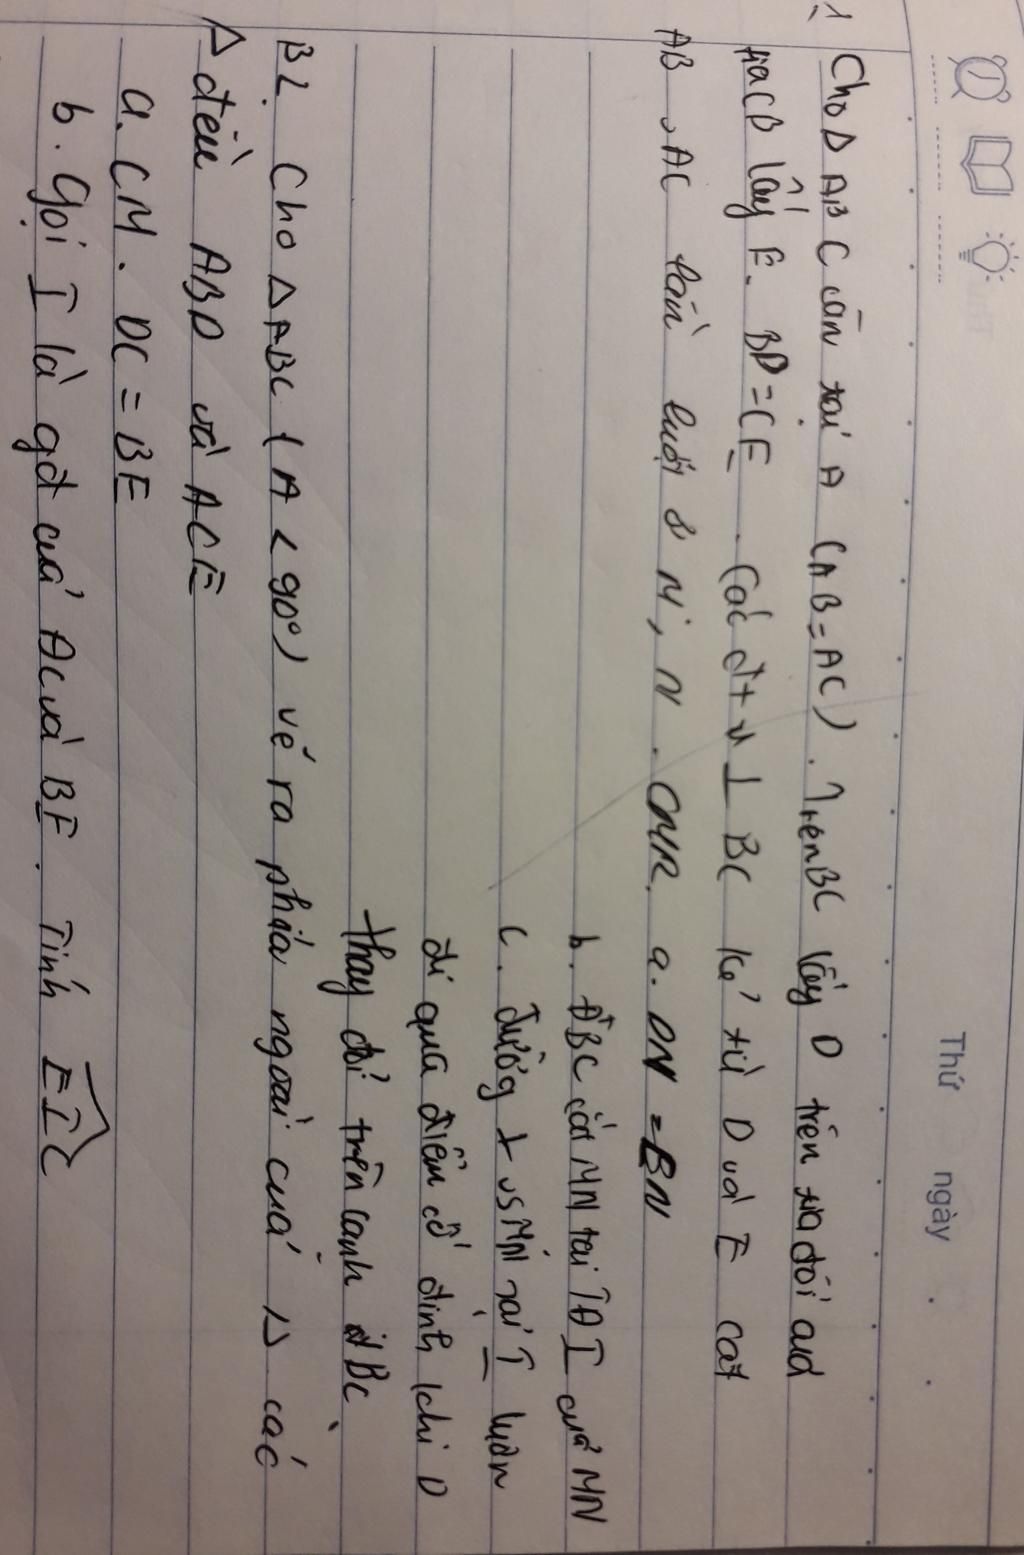 Thứ ngày
1,
Cho Δ ABC cân tại A (AB=AC). Trên BC lấy D trên tia đối của
tia CB lấy E. BD=CE. Các đt ⊥ BC kẻ từ D và E cắt
AB, AC lần lượt ở M, N. CMR. a. DN = BN
b. ĐBC cắt MN tại TĐ I của MN
c. đường ⊥ vs MN tại I luôn
đi qua điểm cố định khi D
thay đổi trên cạnh BC
B2. Cho ΔABC (A < 90°) vẽ ra phía ngoài của Δ các
Δ đều ABD và ACE
a. CM. DC = BE
b. Gọi I là gđ của DC và BE. Tính EIC